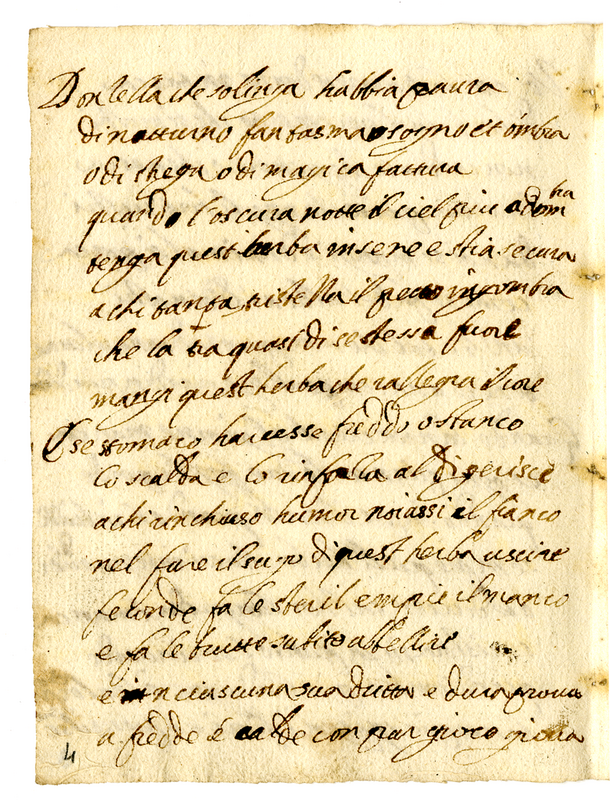 Donzella che solinga habbia paura
di notturno fantasma o sogno et ombra
o di strega o di magica fattura
quando l'oscura notte il ciel più adombra
tenga quest herba in sen e e stia secura
a chi tanta tristezza il petto ingombra
che la tra quasi di se stessa fuore
mangi quest herba che rallegra il core
O se stomaco havesse freddo o stanco
lo scalda e lo rinfo al digerisce
a chi rinchiuso humor noiassi il fianco
nel fare il sugo di quest herba uscire
feconde fa le steril empie il manco
e fa le brutte subito abbellire
e in ciascuna sua dura prova
a fredde é calde con par gioco giova
4